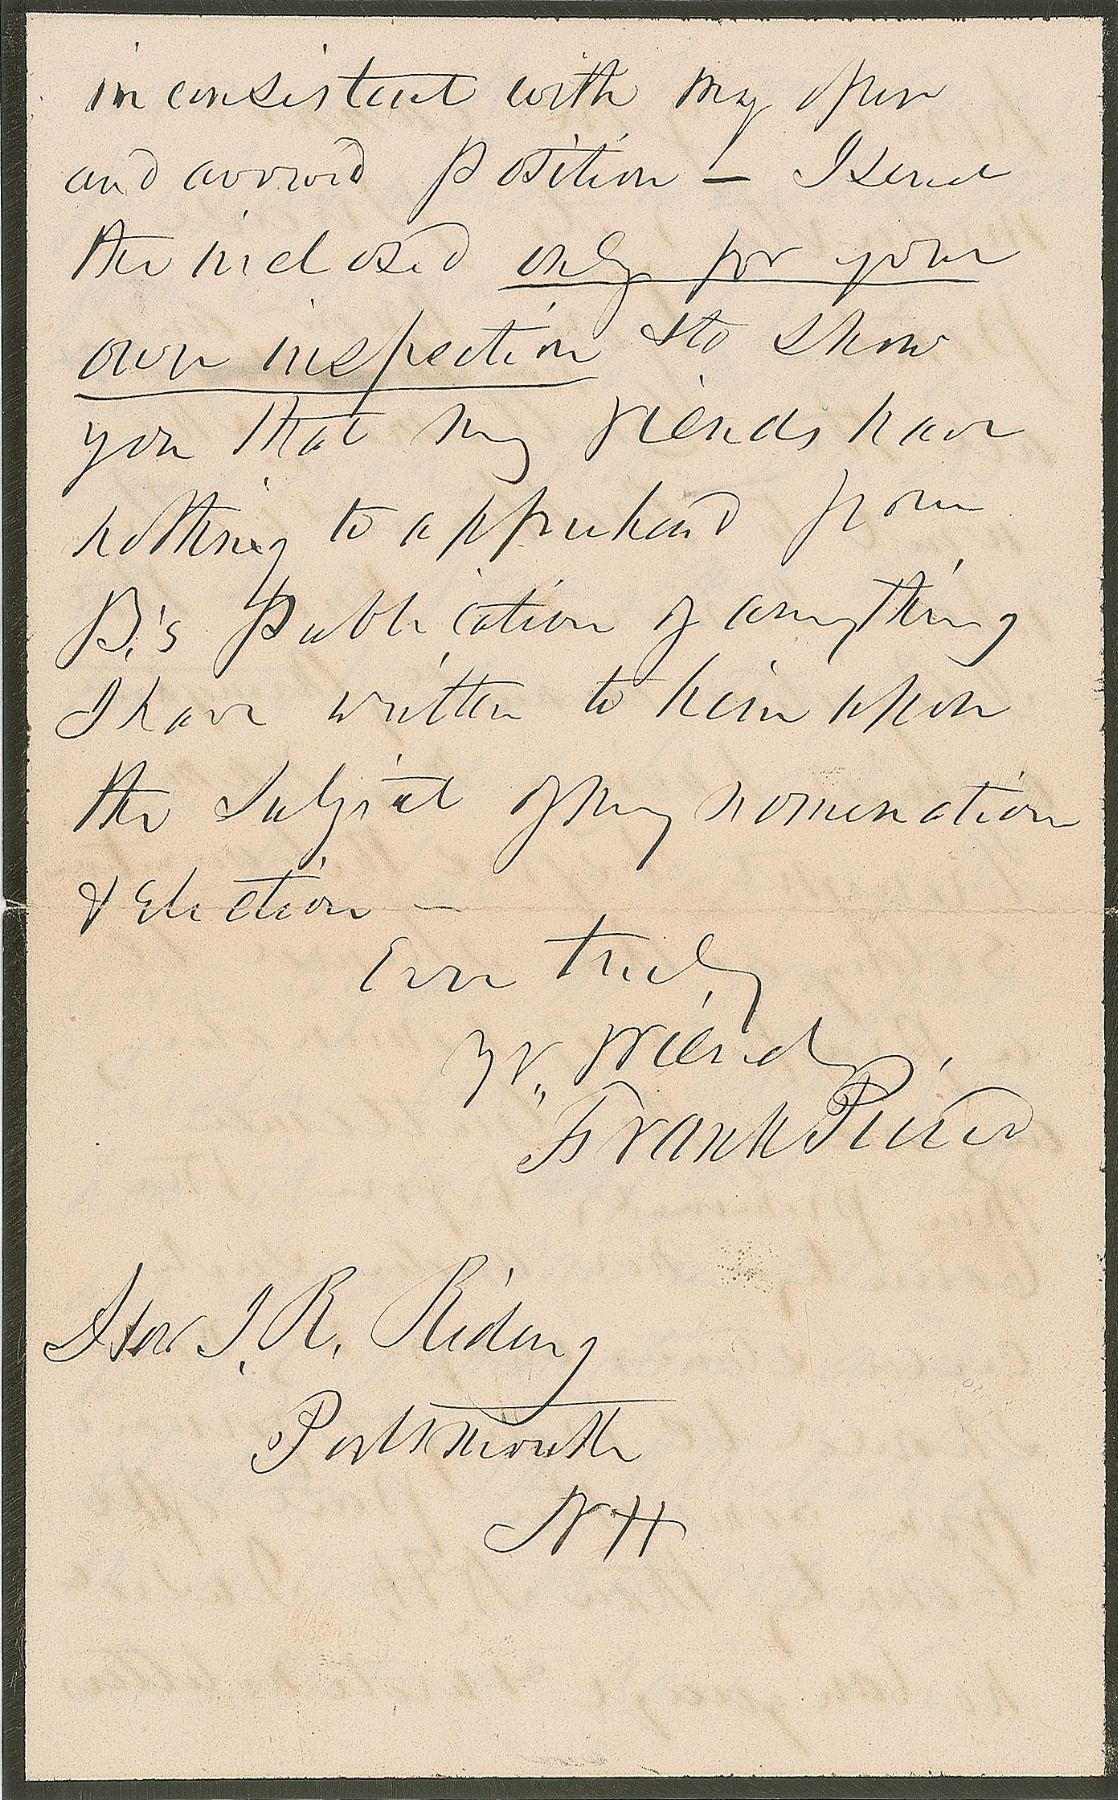 inconsistent with my open
and avowed position — I send
the inclosed only for your
own inspection & to show
you that my friends have
nothing to apprehend from
B.'s Publication of anything
I have written to him upon
the subject of my nomination
& Election —
Ever truly
yr. friend,
Frank Pierce
Hon J. R. Reding
Portsmouth
N H